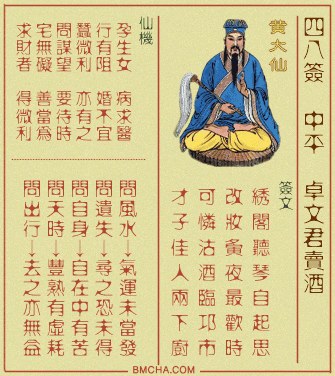 四八簽　中平　卓文君賣酒
黃大仙
簽文
綉閣聽琴自起思
改妝夤夜最歡時
可憐沽酒臨邛市
才子佳人兩下廚
仙機
孕生女　病求醫
行有阻　婚不宜
蠶微利　亦有之
問謀望　要待時
宅無礙　善當為
求財者　得微利
問風水→氣運未當發
問遺失→尋之恐未得
問自身→自在中有苦
問天時→豐熟有虛耗
問出行→去之亦無益
BMCHA.COM